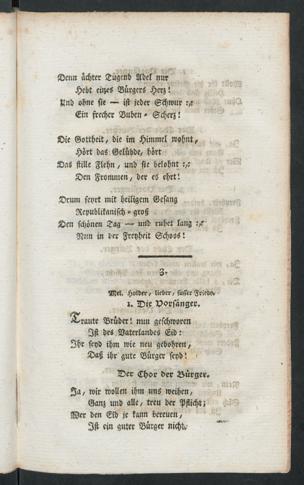 Denn ächter Tugend Adel nur
Hebt eines Bürgers Herz!
Und ohne sie — ist jeder Schwur :,:
Ein frecher Buben-Scherz!
Die Gottheit, die im Himmel wohnt,
Hört das Gelübde, hört
Das stille Flehn, und sie belohnt :,:
Den Frommen, der es ehrt!
Drum feyrt mit heiligem Gesang
Republikanisch-groß
Den schönen Tag — und ruhet lang :,:
Nun in der Freyheit Schoos!
3.
Mel. Holder, lieber, süsser Friede.
1. Die Vorsänger.
Traute Brüder! nun geschworen
Ist des Vaterlandes Eid:
Ihr seyd ihm wie neu gebohren,
Daß ihr gute Bürger seyd!
Der Chor der Bürger.
Ja, wir wollen ihm uns weihen,
Ganz und alle, treu der Pflicht;
Wer den Eid je kann bereuen,
Ist ein guter Bürger nicht.